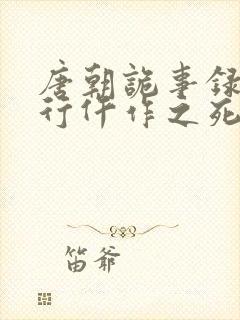 唐朝詭事録
行仵作之死
笛爷